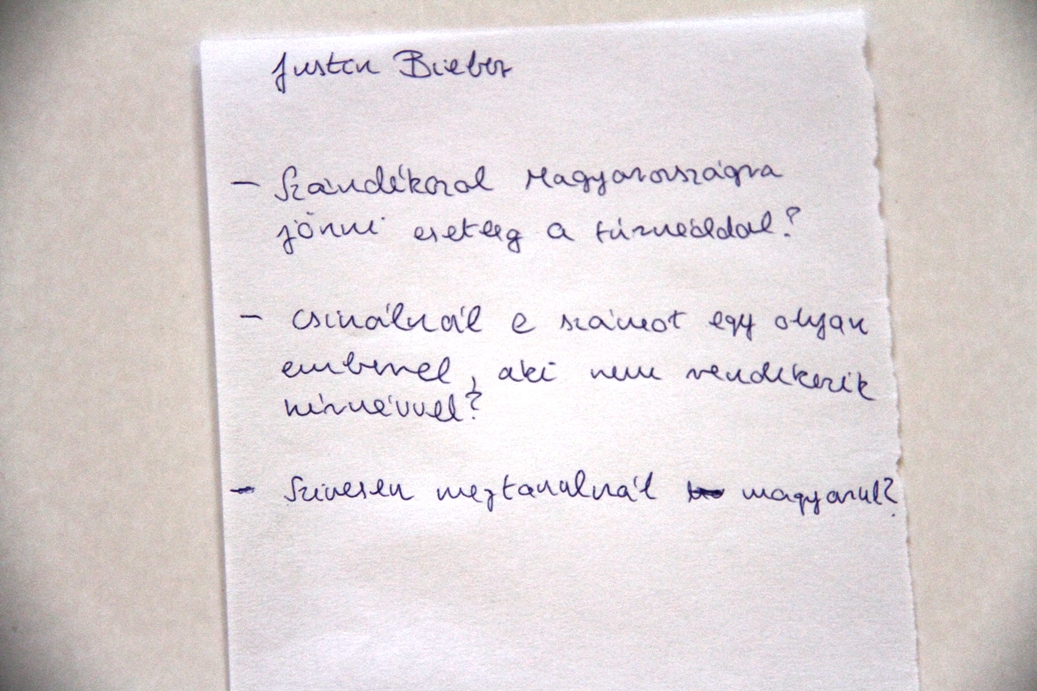 Justin Bieber
- Szándékozol Magyarországra
jönni esetleg a túrnéddal?
- Csinálnál e számot egy olyan
emberrel, aki nem rendekezik
hírnévvel?
- Szívesen megtanulnál magyarul?